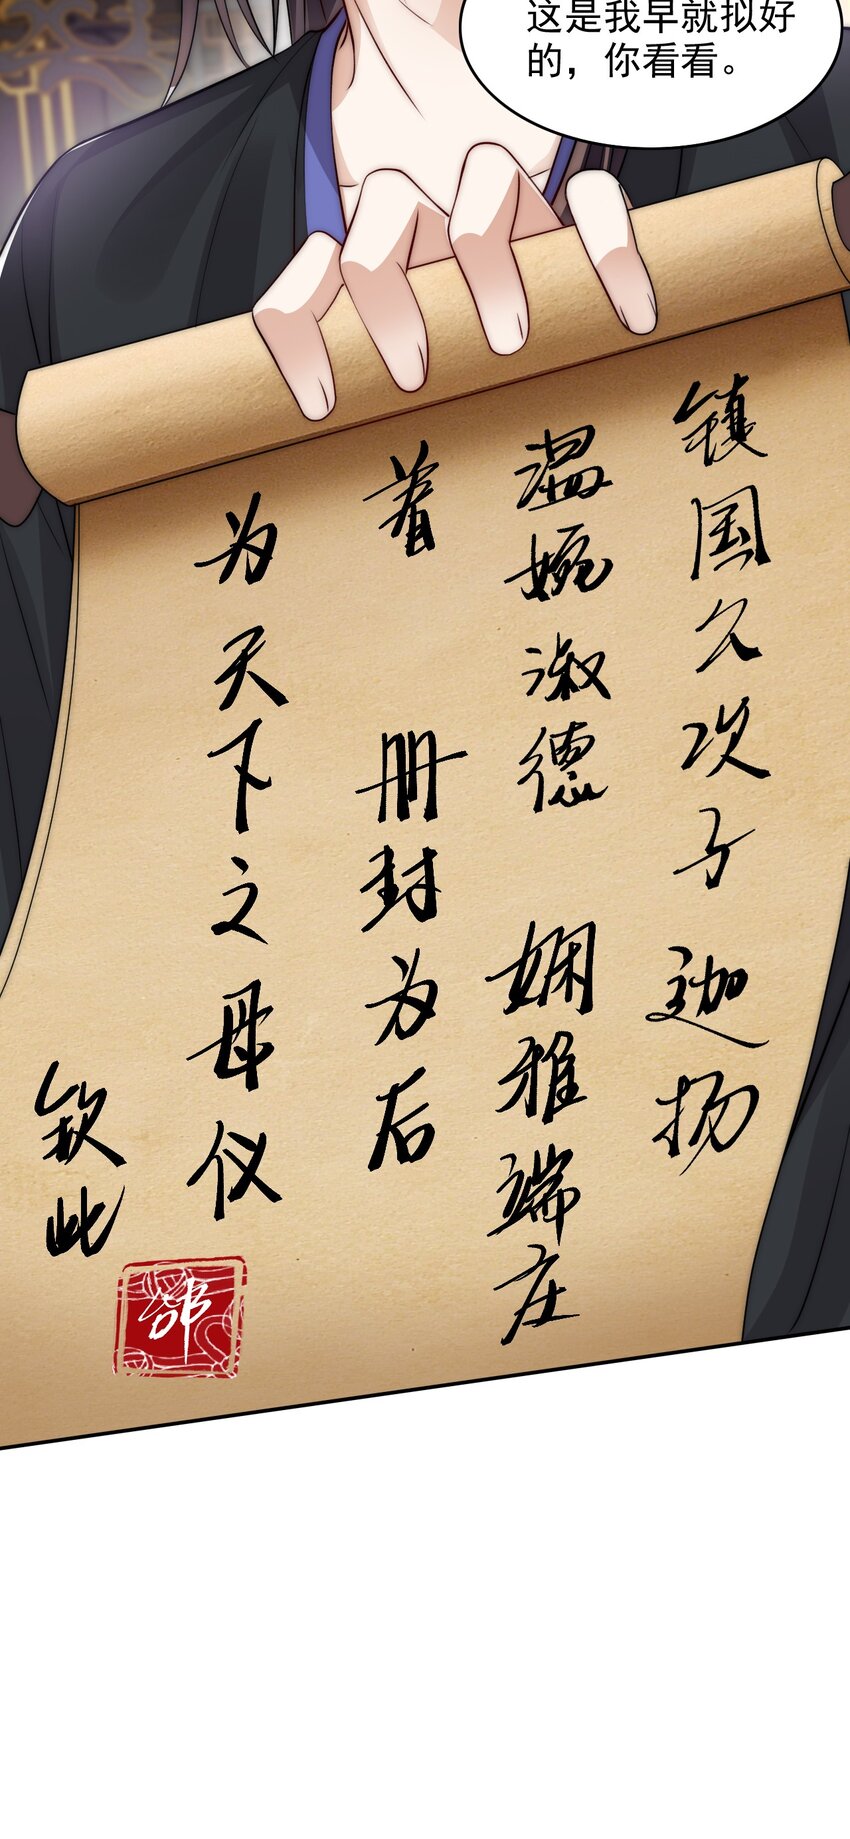 这是我早就拟好
的，你看看。
镇国久次子 迦扬
温婉淑德 娴雅端庄
着 册封为后
为天下之母仪
钦此